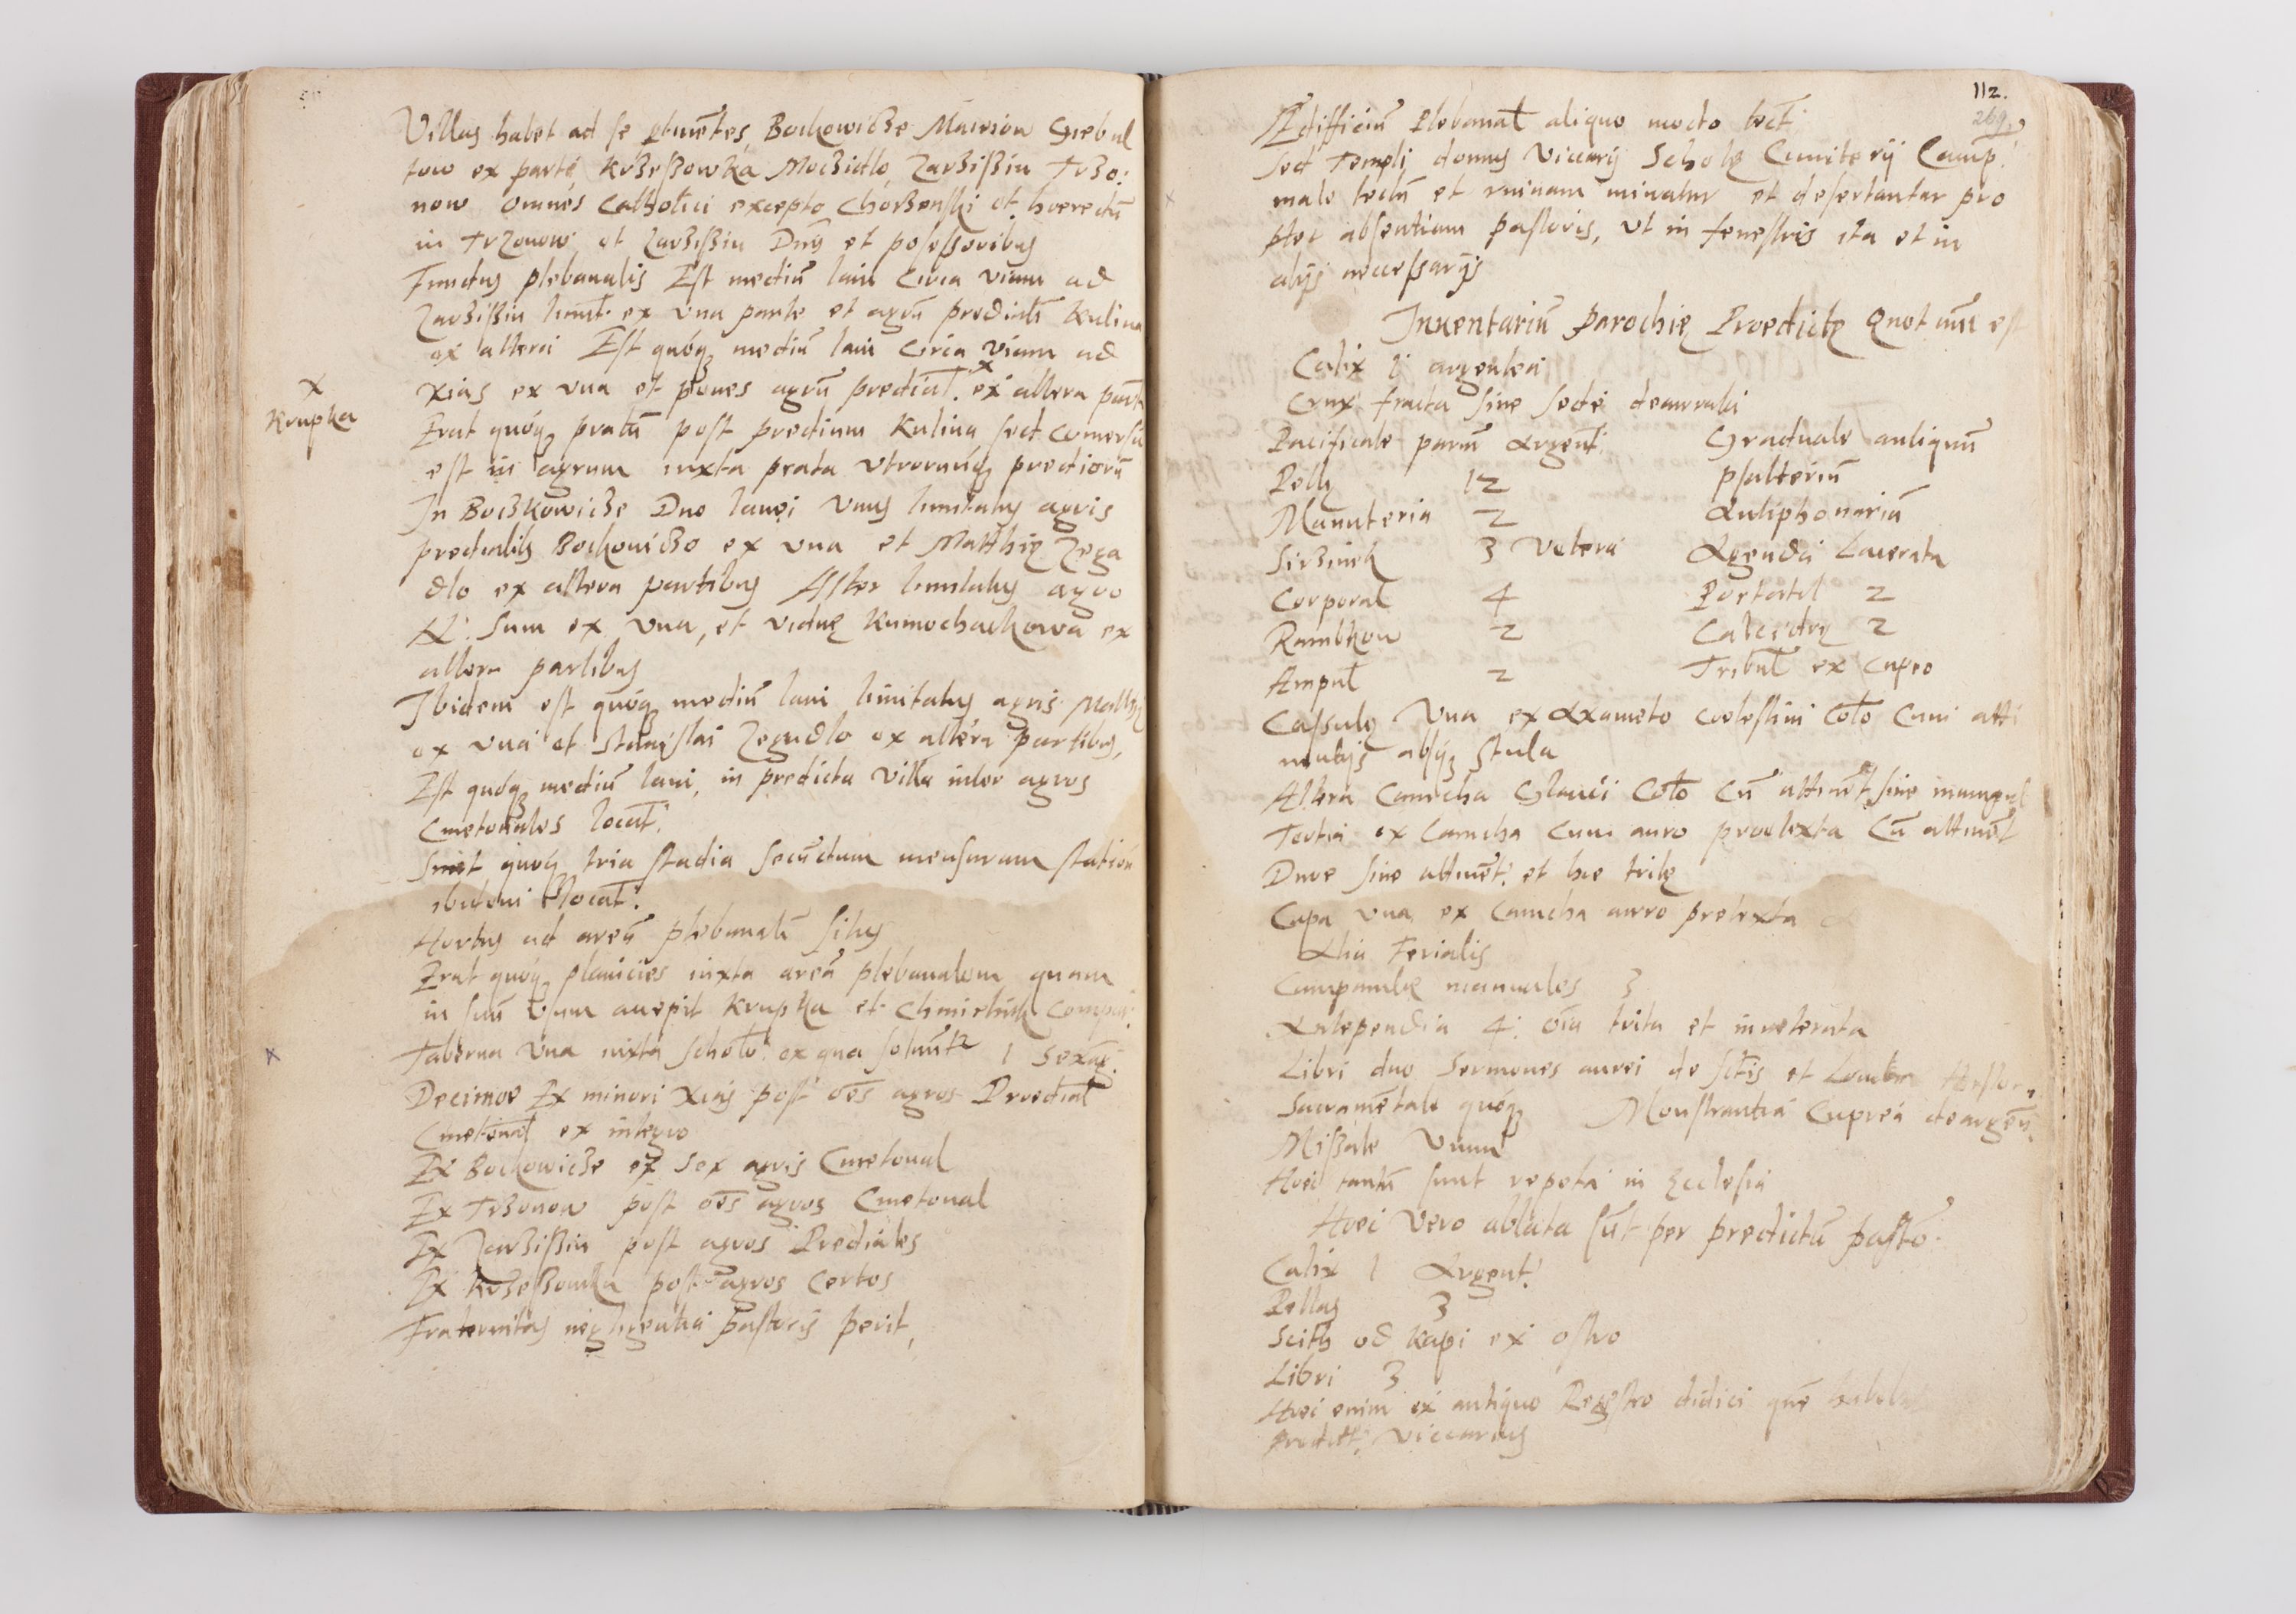 Villas habet ad se ptinẽtes, Bockowicze Maierow Grebul
tow ex parte, Krzeszowka Moczidlo, Zarziszin Trzo:
now omnes Catholici excepto Chorzenski et hoeredũ
in Trzonow et Zarziszin Dnis et posessoribus
Fundus plebanalis Est mediũ lani Circa viam ad
Zarziszin limit. ex vna parte et agrũ prediali Kulina
ex altera Est quóq; mediũ lani Circa viam ad
Xias ex vna et penes agrũ predial. ex altera parte
x
Krupka
Erat quóq; pratũ post predium Kulina sed conersũ
est in agrum iuxta prata vtrorumq; prediorũ
In Boczkowicze Duo lanei Vnus limitatus agris
predialib; Bockowicze ex vna et Matthię Zega
dlo ex altera partibus Alter limitatus agro
N. Sum ex vna, et viduę Kumochackowa ex
altera partibus
Ibidem est quóq; mediũ lani limitatus agris Matthię
ex vna et Stanislai Zegadlo ex altera partibus,
Est quóq; mediũ lani, in predicta villa inter agros
Cmetonales locat:
Sunt quóq; tria stadia secũdum mensuram
ibidem locat:
Hortus ad areã plebanalẽ situs
Erat quóq; planicies iuxta areã plebanalem quam
in suũ vsum accepit Krupka et Chmielnik
Taberna vna iuxta Schola: ex qua soluũtr 1 Sexag:
Decimae Ex minori Xias post oẽs agros Praedial
Cmetonal ex integro
Ex Bockowicze ex sex agris Cmetonal
Ex Trzonow post oẽs agros Cmetonal
Ex Zarziszin post agros Prediales
Ex Krzeszowka post agros Certos
Fraternitas negligentia Pastoris perit,
112.
269
Ædifficiũ Plebanal aliquo modo tect:
sed Templi domus Viccarij Scholę Cimiterij Camp:
male tectũ et ruinam minatur et desertantur pro
pter absentiam pastoris, vt in fenestris ita et in
alijs necessarijs
Inuentariũ Parochię Praedictę Quot est
Calix 1 argentea
Crux fracta sine sede deaurata
Pacificale paruũ Argent: Graduale antiquũ
Pellę 12 Psalteriũ
Manuteria 2 Antiphonariũ
Sirzinek 3 Vetera Agenda Lacerata
Corporal 4 Portatil 2
Rambkow 2 2
Ampul 2 Tribul ex cupro
Cassulę Vna ex Axameto coelestini Colo Cum atti
nentijs absq; Stula
Altera Camcha Glauci Colo Cũ attinẽt, sine manipul
Tertia ex Camcha cum auro praetexta Cũ attinẽt
Duae sine attinẽt: et hae tritę
Capa vna ex Camcha aurro pretexta
Alia Ferialis
Campanulę manuales 3
Antependia 4: oĩa trita et inueterata
Libri duo Sermones aurei de Sctis et
Sacramẽtale quóq; Monstrantia Cuprea deargẽn.
Missale Vnum
Haec tantũ sunt reperta in Ecclesia
Haec vero ablata sũt per predictũ pasto:
Calix 1 Argent:
Pellas 3
Scith od Kapi ex ostro
Libri 3
Haec enim ex antiquo Regestro didici quẽ
predict: viccarius